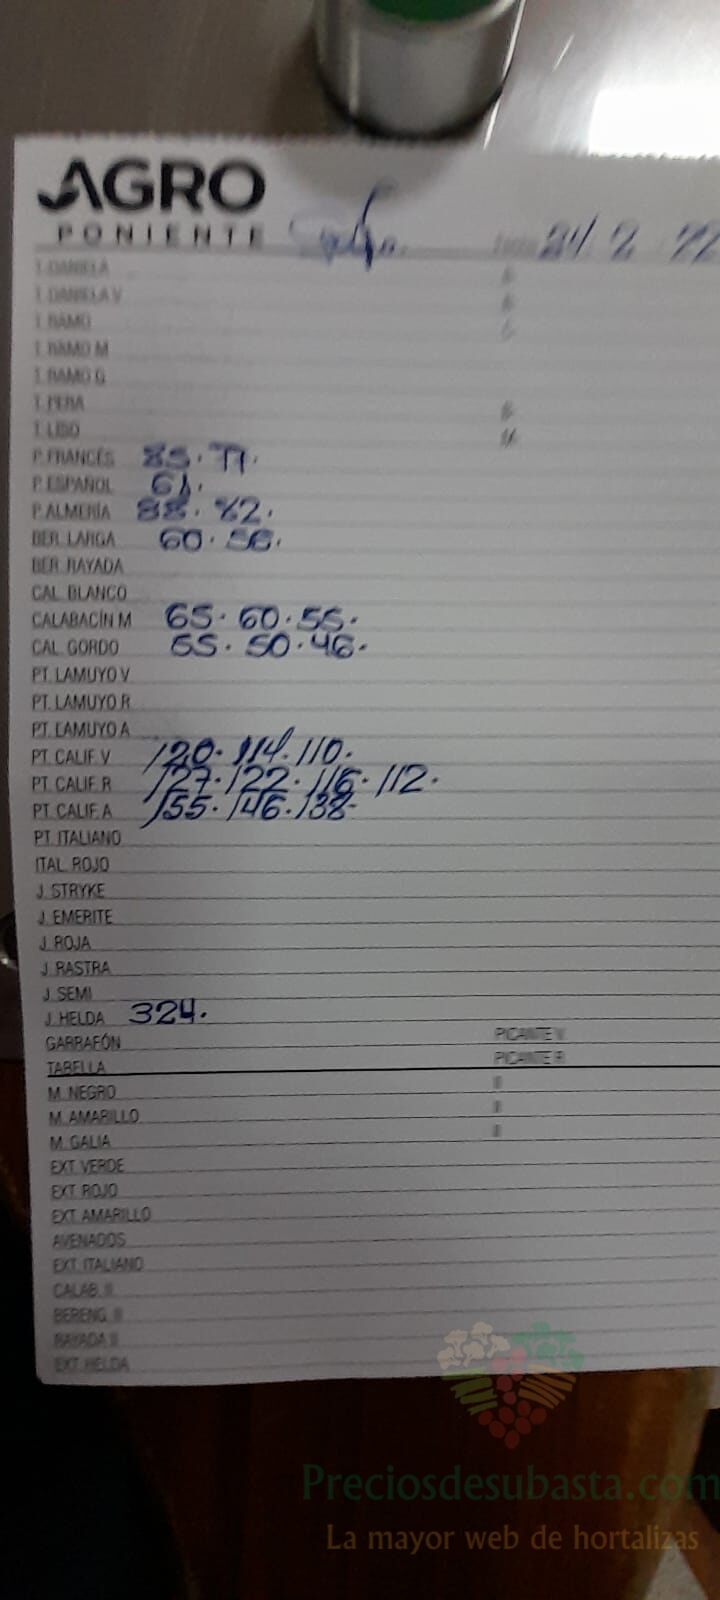 AGRO
PONIENTE
24 2 22
T. DANIELA
T. DANIELA V
T. RAMO
T. RAMO M
T. RAMO G
T. PERA
T. LISO
P. FRANCÉS 85. 77.
P. ESPAÑOL 61.
P. ALMERÍA 88. 82.
BER. LARGA 60. 56.
BER. RAYADA
CAL. BLANCO
CALABACÍN M 65. 60. 55.
CAL. GORDO 55. 50. 46.
PT. LAMUYO V
PT. LAMUYO R
PT. LAMUYO A
PT. CALIF. V 120. 114. 110.
PT. CALIF. R 127. 122. 116. 112.
PT. CALIF. A 155. 146. 138
PT. ITALIANO
ITAL. ROJO
J. STRYKE
J. EMERITE
J. ROJA
J. RASTRA
J. SEMI
J. HELDA 324.
GARRAFÓN PICANTE V
TABELLA PICANTE R
M. NEGRO
M. AMARILLO
M. GALIA
EXT. VERDE
EXT. ROJO
EXT. AMARILLO
AVENADOS
EXT. ITALIANO
CALAB. II
BERENG. II
RAYADA II
EXT. HELDA
Preciosdesubasta.com
La mayor web de hortalizas